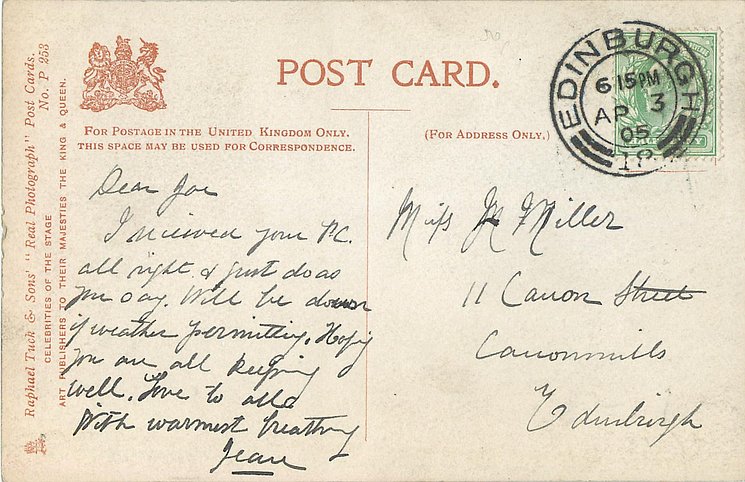 Raphael Tuck & Sons' "Real Photograph" Post Cards.
No. P 253
CELEBRITIES OF THE STAGE
ART PUBLISHERS TO THEIR MAJESTIES THE KING & QUEEN.
POST CARD.
FOR POSTAGE IN THE UNITED KINGDOM ONLY.
THIS SPACE MAY BE USED FOR CORRESPONDENCE.
(FOR ADDRESS ONLY.)
EDINBURGH
6 15 PM
AP 3
05
18
Dear Joe
I recieved your P.C.
all right & just do as
you say. Will be down
if weather permitting. Hoping
you are all keeping
well. Love to all
With warmest
Jean
Miss M Miller
11 Canon Street
Canonmills
Edinburgh